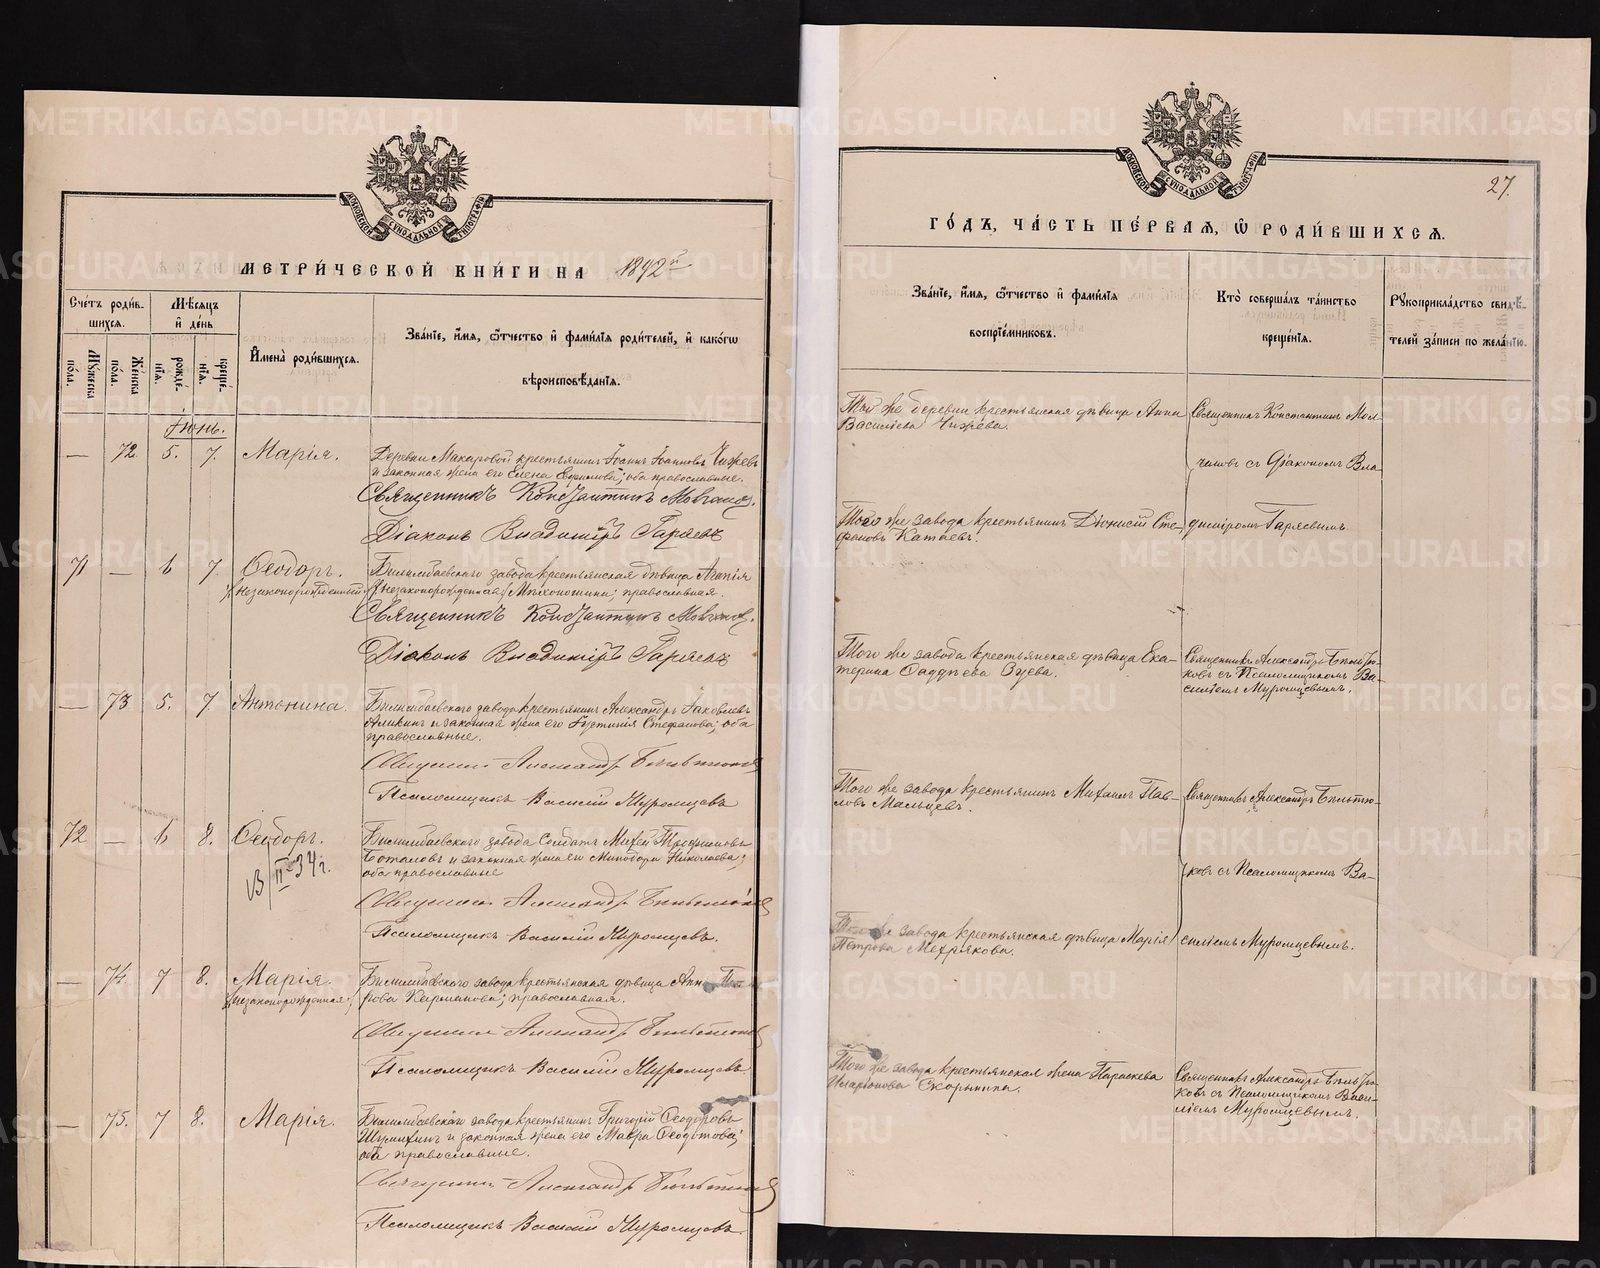 МЕТРИ́ЧЕСКОЙ КНИ́ГИ НА 1892й
Сче́тъ роди́в-
шихся.
Мѣ́сяцъ
и҆ де́нь
Му́жеска
по́ла.
Же́нска
по́ла.
рожде́-
нїя.
креще́-
нїя.
И҆мена̀ роди́вшихся.
Зва́нїе, и҆́мя, ѻ҆́тчество и҆ фами́лїя роди́телей, и҆ како́гѡ
вѣроисповѣ́данїя.
Іюнь.
— 72 5. 7. Марія.
Деревни Макаровой крестьянинъ Іоаннъ Іоанновъ Чижевъ
и законная жена его Елена Ефимова; оба православные.
Священникъ Константинъ
Діаконъ Владиміръ Гаряевъ
71 — 6 7. Ѳеодоръ.
(незаконорожденный)
Билимбаевскаго завода крестьянская дѣвица Агапія
(незаконорожденная) православная.
Священникъ Константинъ
Діаконъ Владиміръ Гаряевъ
— 73 5. 7 Антонина.
Билимбаевскаго завода крестьянинъ Александръ Іаковлевъ
Аликинъ и законная жена его Іустинія Стефанова; оба
православные.
Священникъ Александръ Бѣльтюковъ
Псаломщикъ Василій Муромцевъ
72 — 6 8. Ѳеодоръ.
В/II 34 г.
Билимбаевскаго завода солдатъ Михей Трофимовъ
Боталовъ и законная жена его Минодора Николаева;
оба православные
Священникъ Александръ Бѣльтюковъ
Псаломщикъ Василій Муромцевъ.
— 74 7 8. Марія.
(незаконорожденная)
Билимбаевскаго завода крестьянская дѣвица Анна
православная.
Священникъ Александръ Бѣльтюковъ
Псаломщикъ Василій Муромцевъ.
— 75. 7 8. Марія.
Билимбаевскаго завода крестьянинъ Григорій Ѳеодоровъ
Шумихинъ и законная жена его Мавра Ѳеодотова;
оба православные.
Священникъ Александръ Бѣльтюковъ
Псаломщикъ Василій Муромцевъ.
27.
ГО́ДЪ, ЧА́СТЬ ПЕ́РВАЯ, Ѡ҆ РОДИ́ВШИХСЯ.
Зва́нїе, и҆́мя, ѻ҆́тчество и҆ фами́лїя
воспрїе́мниковъ.
Кто̀ соверша́лъ та́инство
креще́нїя.
Рꙋкоприкла́дство свидѣ́-
телей за́писи по жела́нїю.
Той же деревни крестьянская дѣвица Анна
Василіева Чижева.
Священникъ Константинъ Мол-
чановъ съ Діакономъ Вла-
диміромъ Гаряевымъ.
Того же завода крестьянинъ Діонисій Сте-
фановъ Катаевъ.
Того же завода крестьянская дѣвица Ека-
терина Ѳаддѣева Зуева.
Священникъ Александръ Бѣльтю-
ковъ съ Псаломщикомъ Ва-
силіемъ Муромцевымъ.
Того же завода крестьянинъ Михаилъ Пав-
ловъ Мальцевъ.
Священникъ Александръ Бѣльтю-
ковъ съ Псаломщикомъ Ва-
силіемъ Муромцевымъ.
Того же завода крестьянская дѣвица Марія
Петрова Мехрякова.
Того же завода крестьянская жена Параскева
Иларіонова Скорынина.
Священникъ Александръ Бѣльтю-
ковъ съ Псаломщикомъ Васи-
ліемъ Муромцевымъ.
METRIKI.GASO-URAL.RU